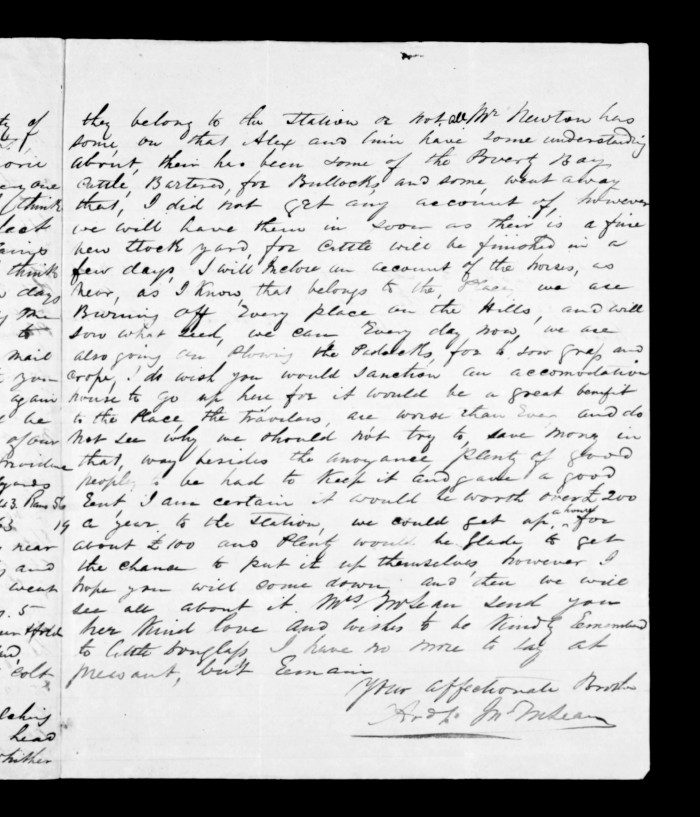 ty of
orie
ery one
think
leck
things
think
days
my Mr
to
mail
to you
again
be
of our
Providence
yards
43 Rams 56
63 19
near
and
went
5
Hold
colt
head
whither
they belong to the Station or not. Mr Newton has
some, on that Alex and him have some understanding
about, their has been some of the Povert Bay
Cattle, Bartered, for Bullocks, and some, went away
that, I did not get any account of, however
we will have them in soon as their is a fine
new Stock yard, for Cattle will be finished in a
few days, I will Inclose an account of the horses, as
near, as I know, that belongs to the place we are
Burning off Every place on the Hills, and will
sow what seed, we can Every day now, we are
also going on Plowing the Padocks, for to sow grass and
crops, I do wish you would sanction an accomodation
house to go up here for it would be a great benefit
to the Place, the travelers, are worse than Ever and do
not see why we should not try to save money in
that, way besides the anoyance, Plenty of good
people to be had to Keep it and gave a good
Rent, I am certain it would be worth over £200
a year to the Station, we could get up a house for
about £100 and Plenty would be Glade to get
the chance to put it up themselves, however I
hope you will come down and then we will
see all about it. Mrs McLean send you
her Kind love and wishes to be Kindly Remembered
to Little Douglass I have no more to say at
presant, but Remain
Your affectionate Brother
Archd. Jn. McLean